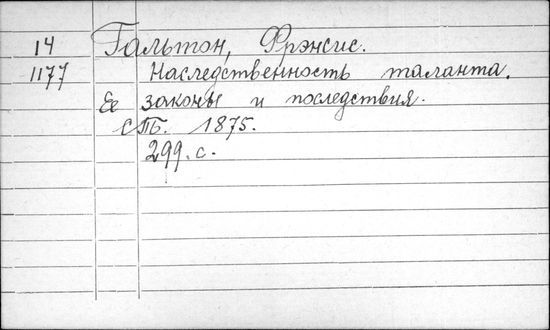 14 Гальтон, Фрэнсис.
1177 Наследственность таланта.
Ее законы и последствия.
СПБ. 1875.
299.с.